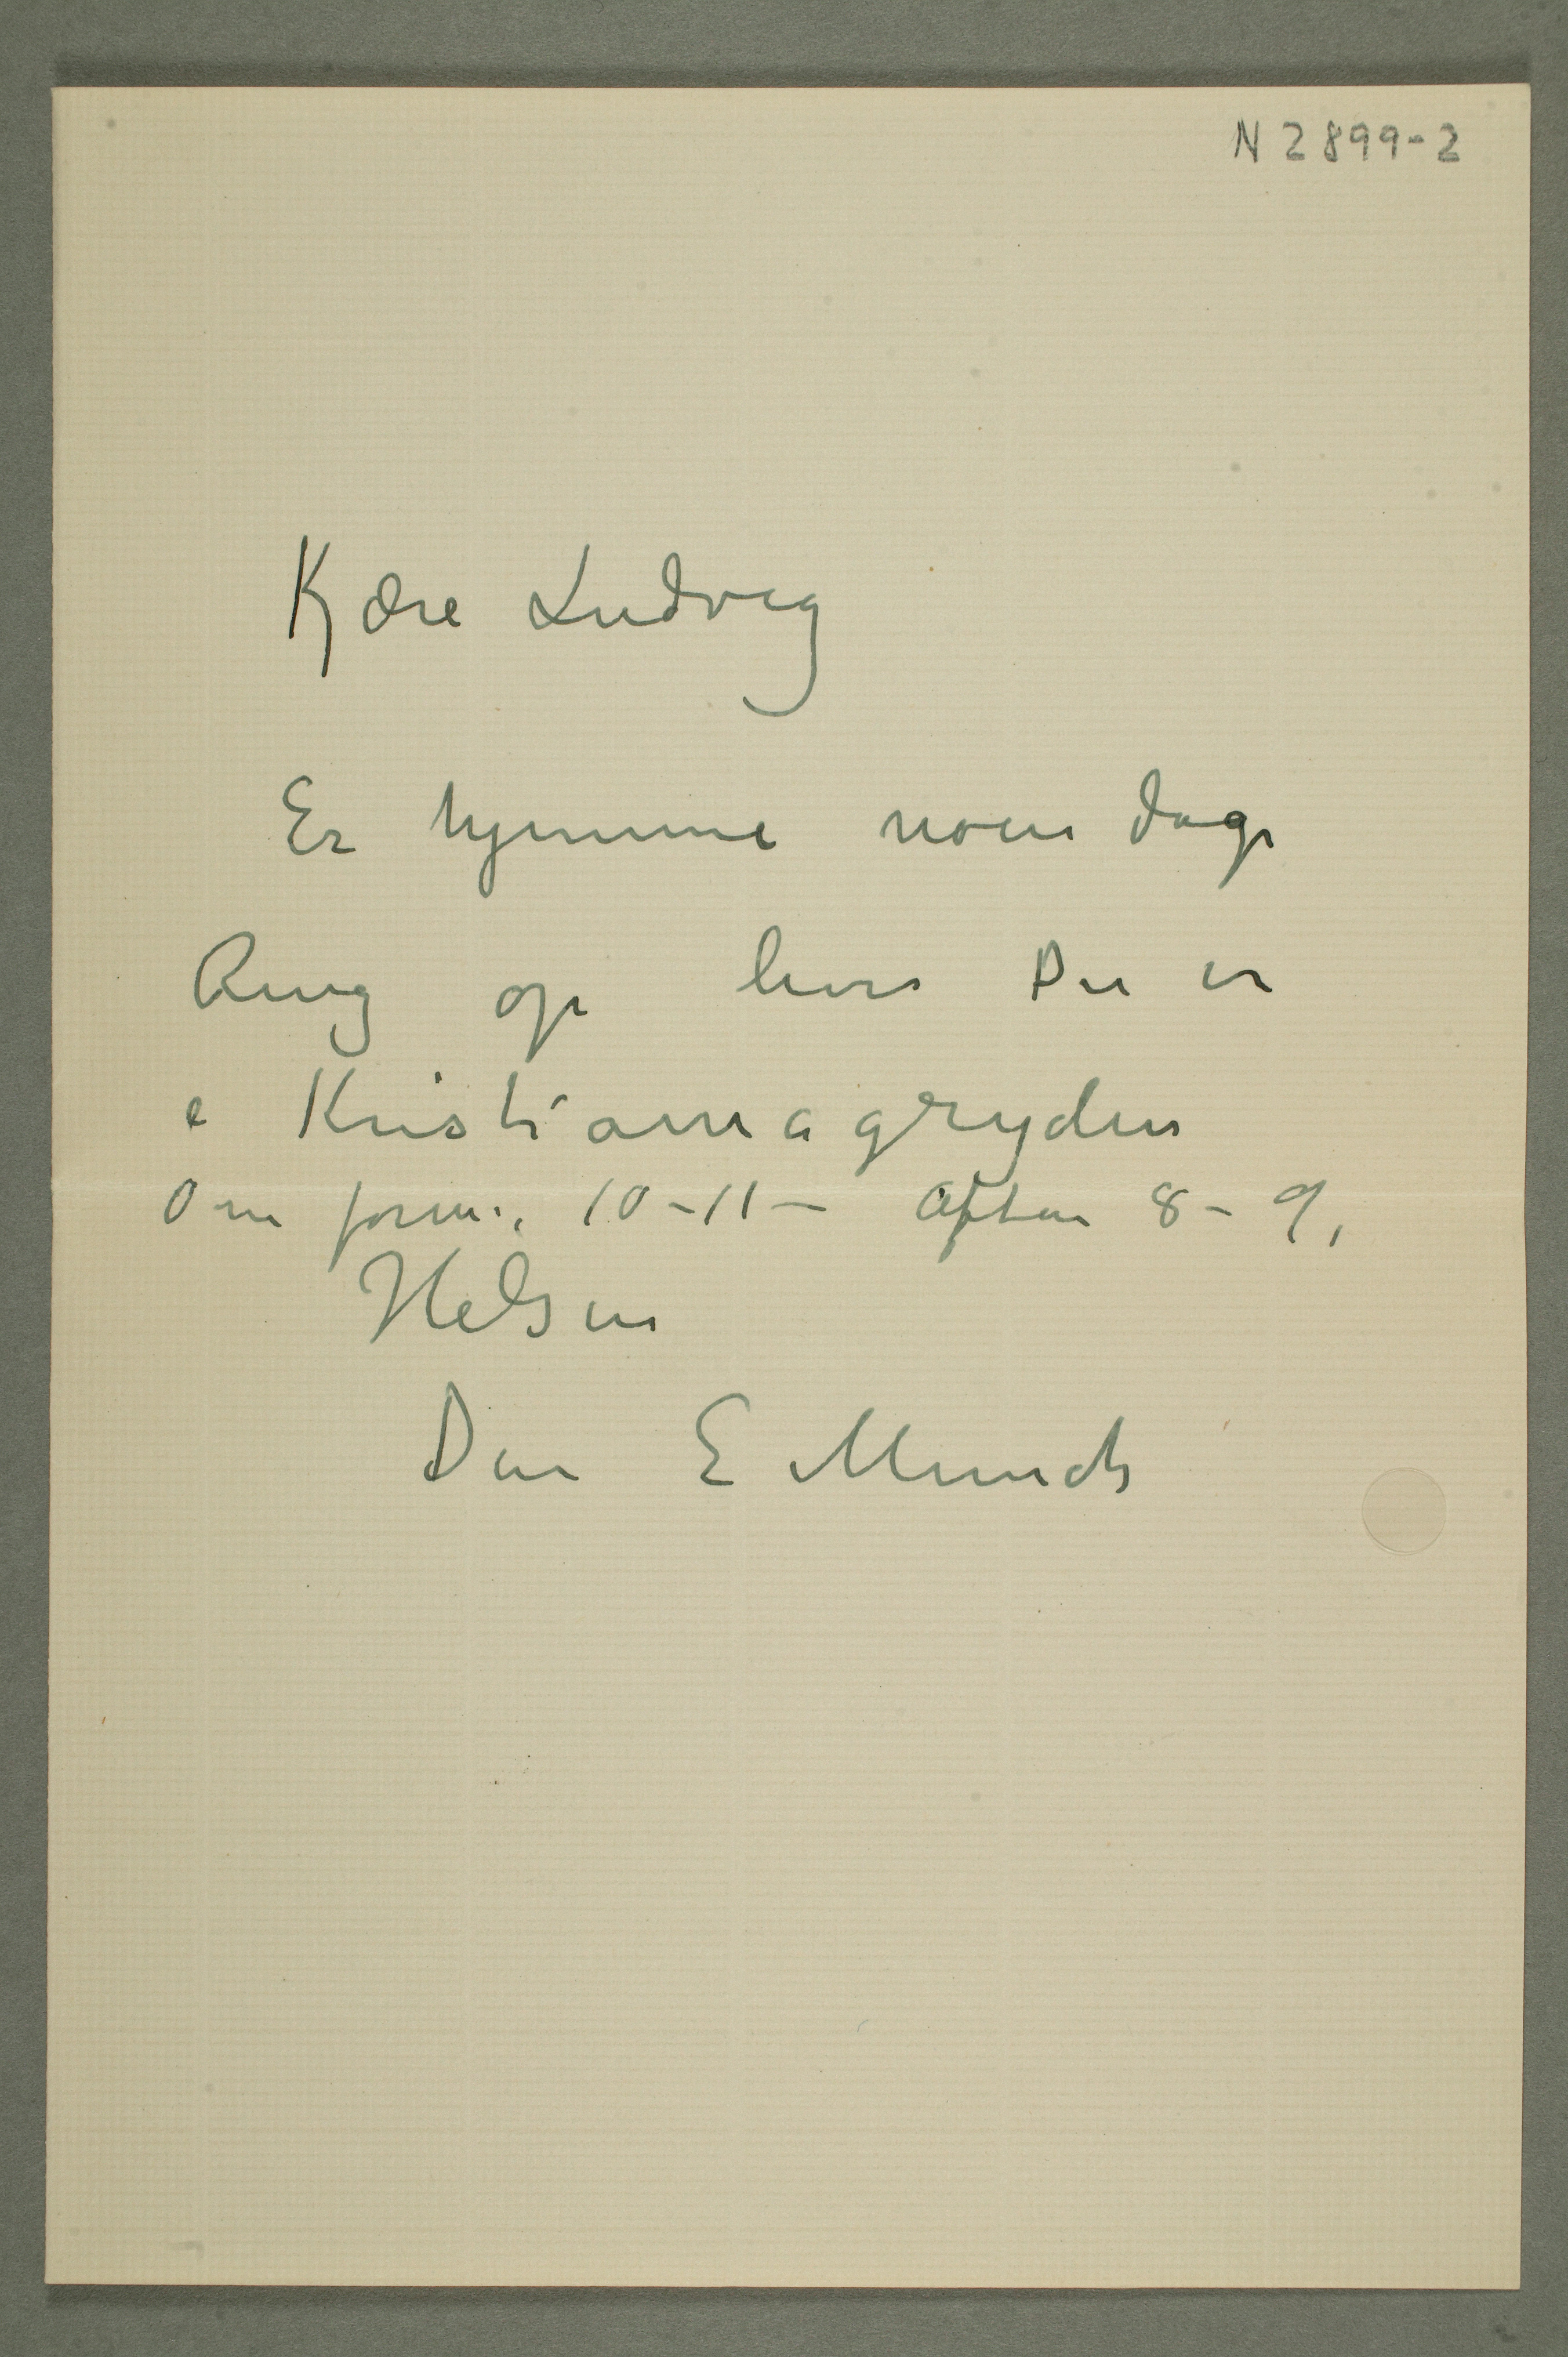 N 2899-2
Kjære Ludvig
Er hjemme noen dage
Ring op hvis Du er
i Kristianiagryden
Om form. 10-11 – Aften 8-9,
Helsen
Din E Munch